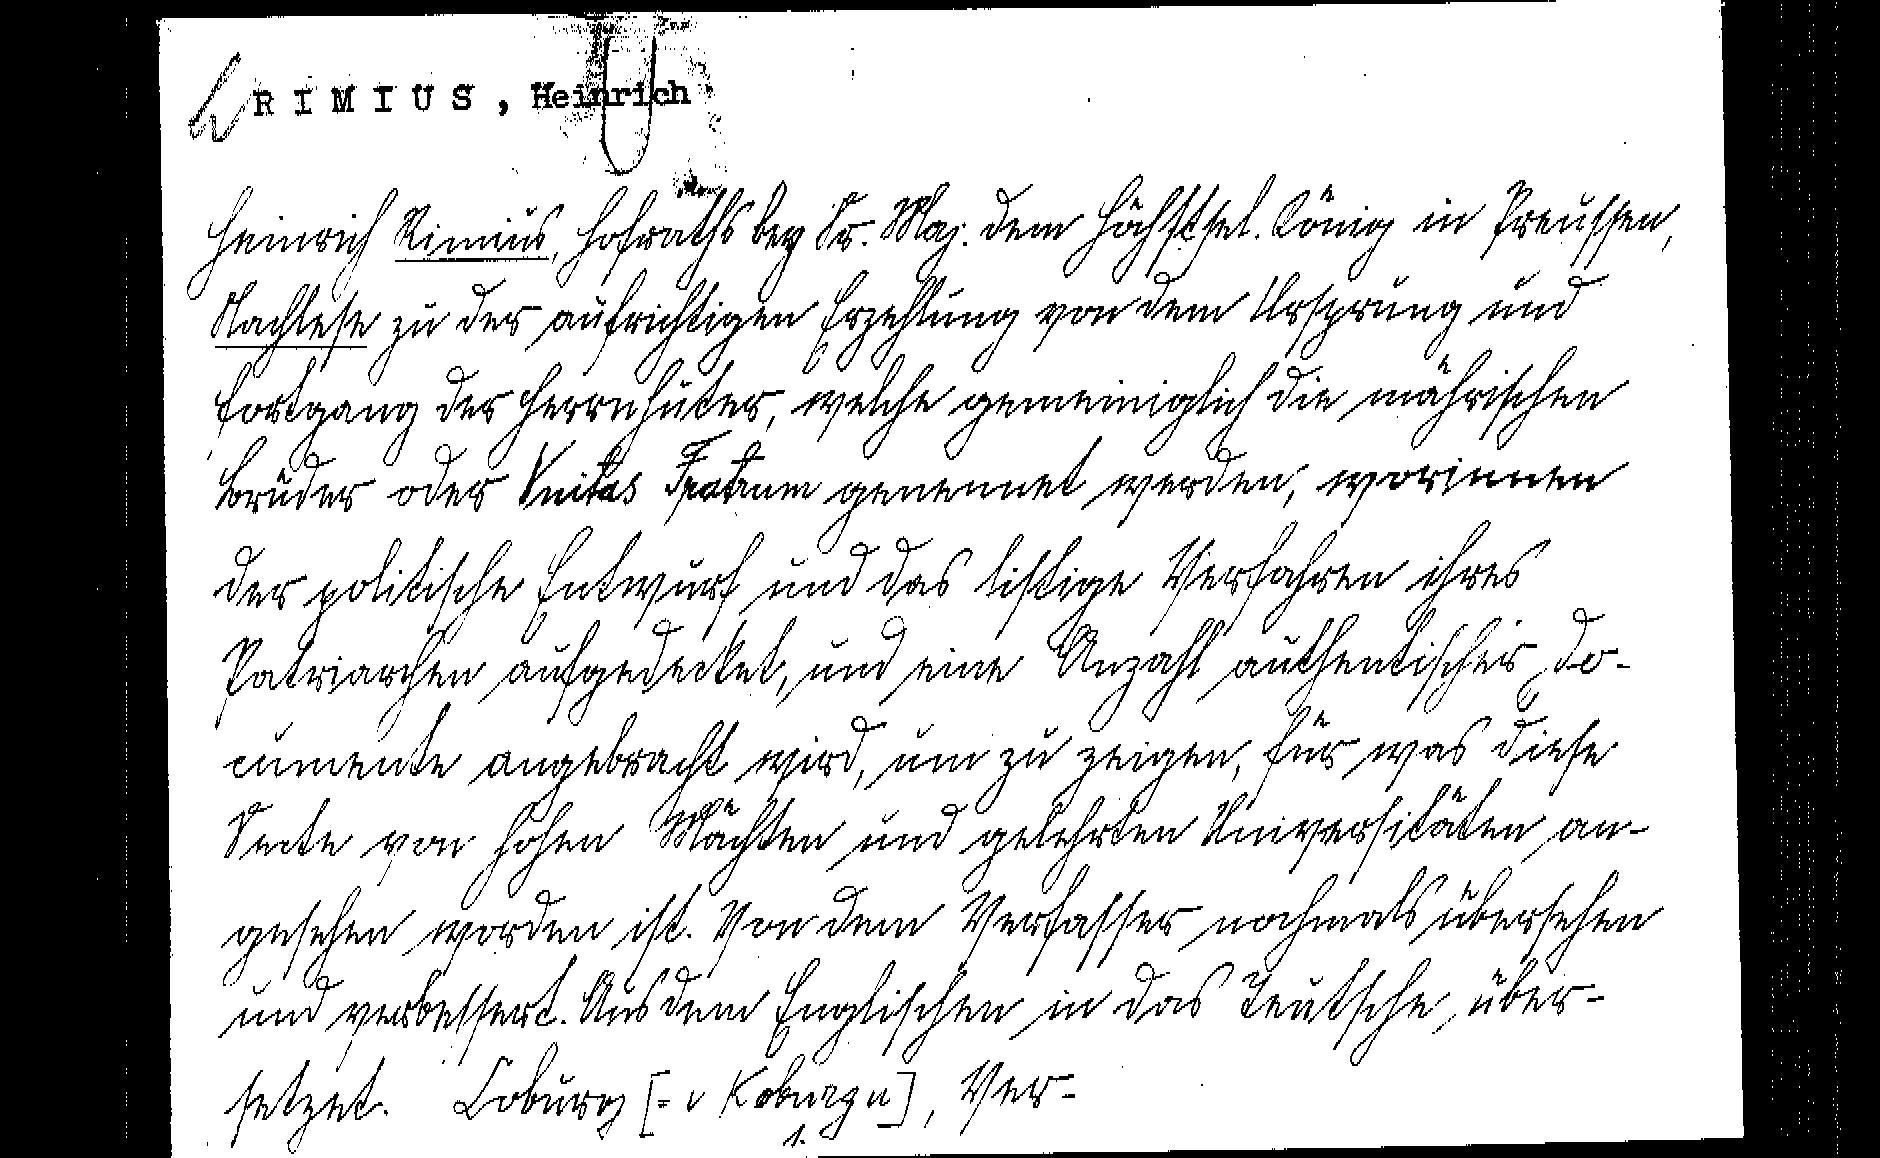 RIMIUS, Heinrich
Heinrich Rimius, Hofraths bey Sr. Maj. dem Höchstsel. König in Preussen,
Nachlese zu der aufrichtigen Erzehlung von dem Ursprung und
Fortgang der Herrnhuter, welche gemeiniglich die mährischen
Brüder oder Unitas Fratrum genennet werden, worinnen
der politische Entwurf und das listige Verfahren ihres
Patriarchen aufgedecket, und eine Anzahl authentischer Do-
cumente angebracht wird, um zu zeigen, für was diese
Secte von hohen Mächten und gelehrten Universitäten an-
gesehen worden ist. Von dem Verfasser nochmals übersehen
und verbessert. Aus dem Englischen in das Teutsche über-
setzet. Coburg [= „Koburg“], Ver-
1.